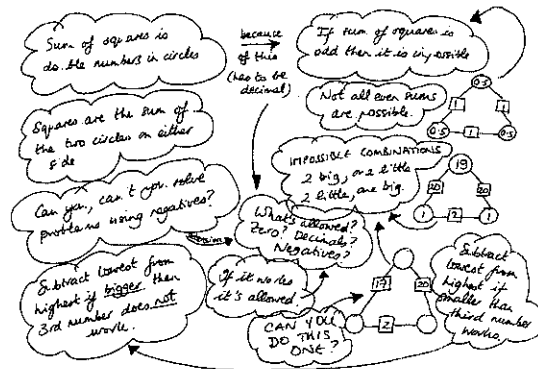 Sum of squares is
double numbers in circles
because
of this
(has to be
decimal)
If sum of squares is
odd then it is impossible
0.5
1
1
0.5
1
0.5
Not all even sums
are possible.
Squares are the sum of
the two circles on either
side
IMPOSSIBLE COMBINATIONS
2 big, one little
2 little, one big.
19
20
20
1
2
1
Can you, can't you solve
problems using negatives?
What's allowed?
Zero? Decimals?
Negatives?
Subtract lowest from
highest if bigger than
3rd number does not
work.
If it works
it's allowed.
CAN YOU
DO THIS
ONE?
17
20
2
Subtract
lowest from
highest if
smaller than
third number
works.